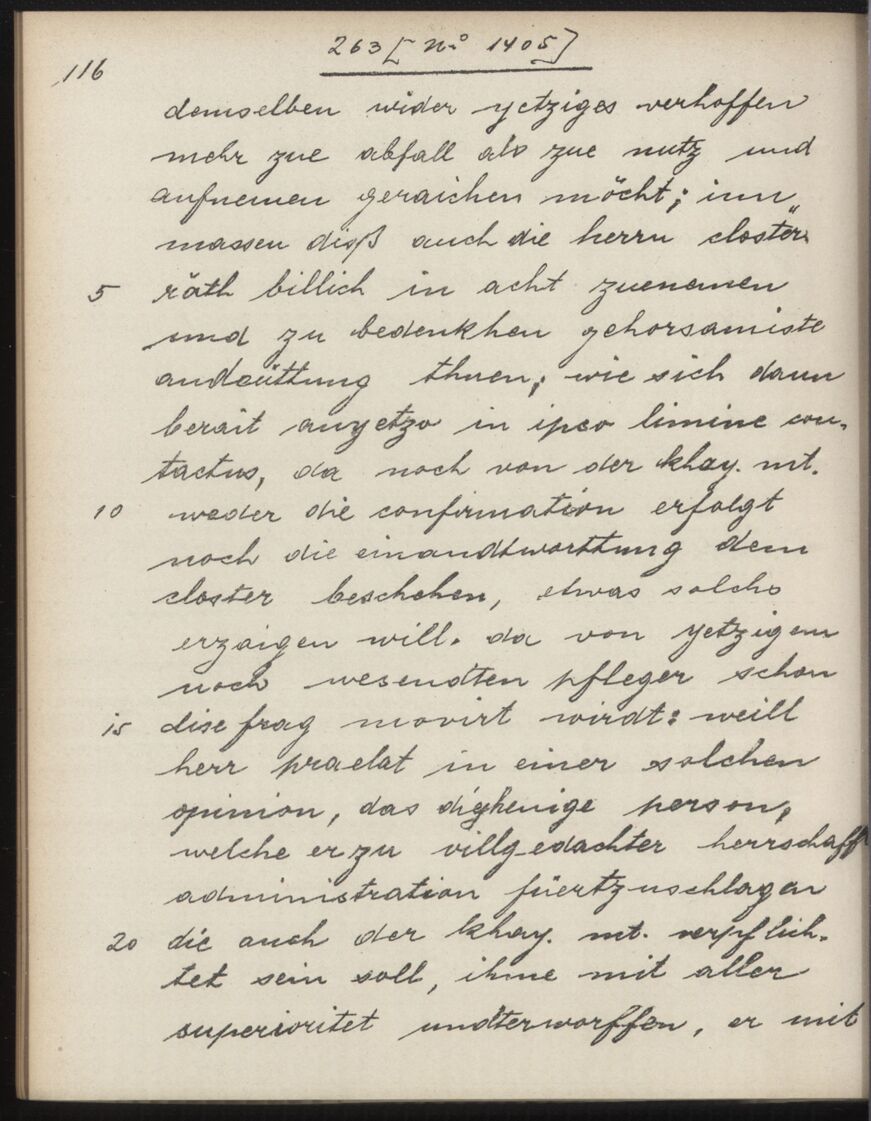 263 [N.o 1405]
116
demselben wider yetziges verhoffen
mehr zue abfall als zue nutz und
aufnemen geraichen möcht; inn„
massen diß auch die herrn closter„
5 räth billich in acht zuenemen
und zu bedenkhen gehorsamiste
andeüttung thuen; wie sich dann
berait anyetzo in ipso limine con-
tactus, da noch von der khay. mt.
10 weder die confirmation erfolgt
noch die einandtworttung dem
closter beschehen, etwas solchs
erzaigen will. da von yetzigem
noch wesendten pfleger schon
15 dise frag movirt wirdt: weill
herr praelat in einer solchen
opinion, das dighenige person,
welche er zu villgedachter herrschafft
administration füertzuschlagen
20 die auch der khay. mt. verpflich-
tet sein soll, ihme mit aller
superioritet undterworffen, er mit